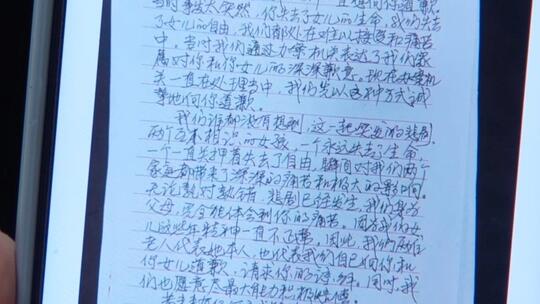 当时事故太突然，你失去了女儿的生命，我们失去
了女儿的自由，我们都处在难以接受和痛苦
中。当时我们通过办案机关表达了我们家
属对你和你女儿的深深歉意。现在办案机
关一直在处理当中，我们先以这种方式诚
挚地向你道歉。
我们谁都没有想到，这一起突发的悲剧，
两个互不相识的女孩，一个永远失去了生命，
一个一直关押着失去了自由，瞬间对我们两个
家庭都带来了深深的痛苦和极大的影响。
无论孰对孰错，悲剧已经发生，我们身为
父母，完全能体会到你的痛苦。因为我们女
儿这些年精神一直不正常。因此，我们两位
老人代表她本人，也代表我们自己向你和
你女儿道歉，请求你的谅解。同时，我
们也愿意尽最大能力积极赔偿